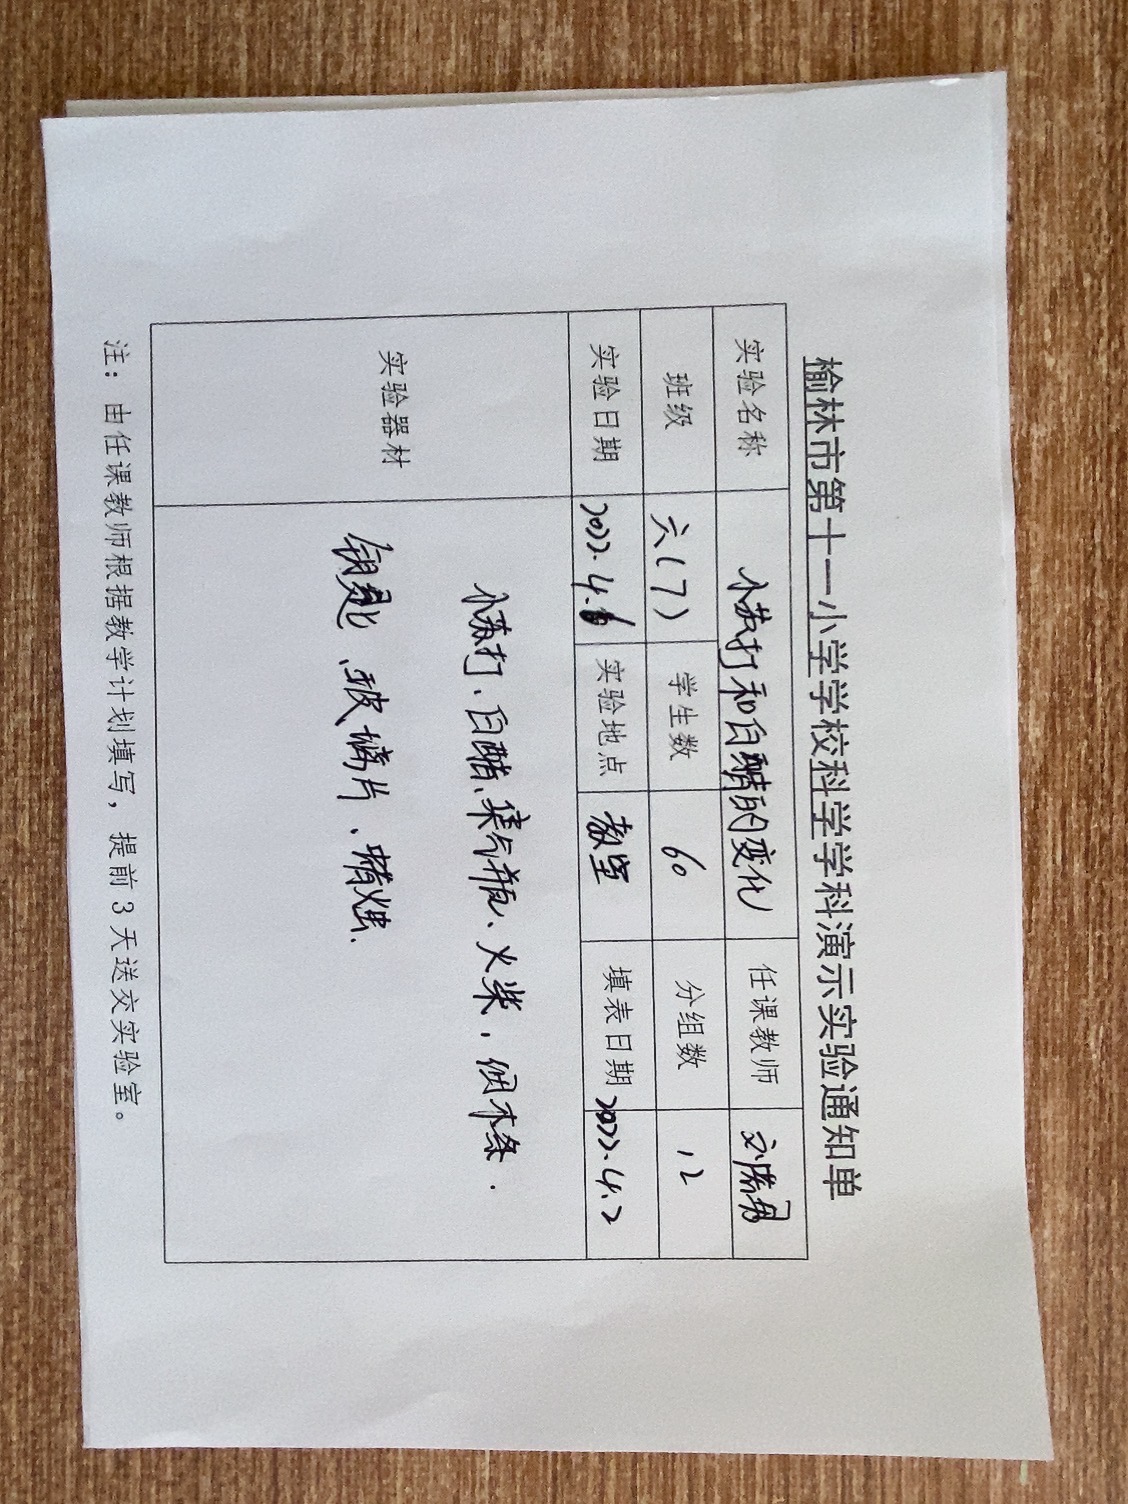 榆林市第十一小学学校科学学科演示实验通知单
实验名称 小苏打和白醋的变化 任课教师
班级 六(7) 学生数 60 分组数 12
实验日期 2022.4.6 实验地点 教室 填表日期 2022.4.2
实验器材 小苏打、白醋、集气瓶、火柴,细木条.
钥匙、玻璃片、蜡烛.
注:由任课教师根据教学计划填写,提前3天送交实验室。